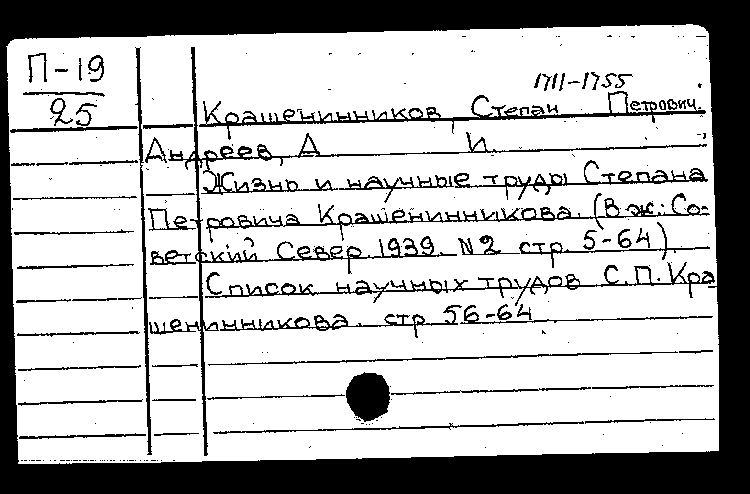 П-19
25
1711-1755
Крашенинников, Степан Петрович.
Андреев, А И.
Жизнь и научные труды Степана
Петровича Крашенинникова. (В ж.: Со-
ветский Север. 1939. N2 стр. 5-64).
Список научных трудов С.П. Кра
шенинникова. стр. 56-64